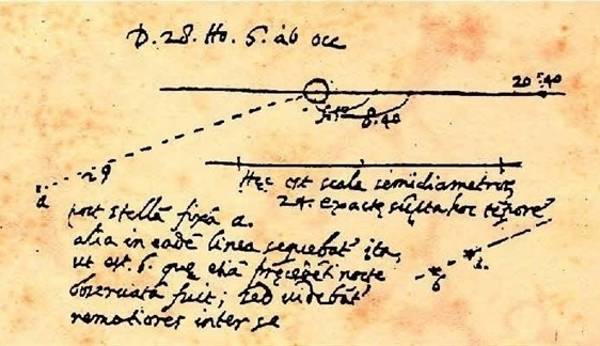 D. 28. Ho. 6. ab occ
20 40
8.40
29
a
Hęc est scala semidiametroꝝ
24. exactę sūpta hoc tēpore
post stellā fixā a.
alia in eadē linea sequebat' ita,
ut est. b. quę etiā pręcedēti nocte
observata fuit; sed videbat'
remotiores inter se
b a.